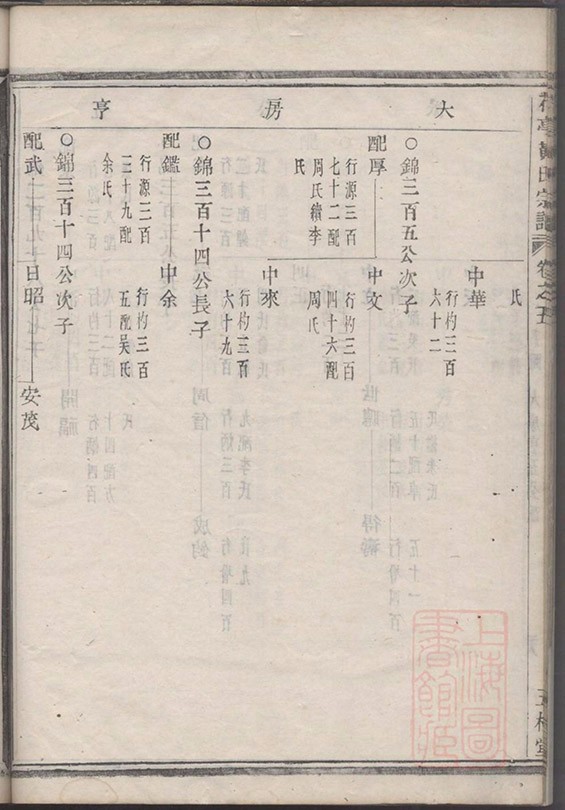 氏宗譜 卷之五
大 房 亨
氏
中華
行杓三百
六十二
○錦三百五公次子
配厚 中文
行源三百
七十二配
周氏續李
氏
行杓三百
四十六配
周氏
中來
行杓三百
六十九
○錦三百十四公長子
配鑑 中余
行源三百
三十九配
余氏
行杓三百
五配吴氏
○錦三百十四公次子
配武 日昭 安茂
上海圖
書館藏